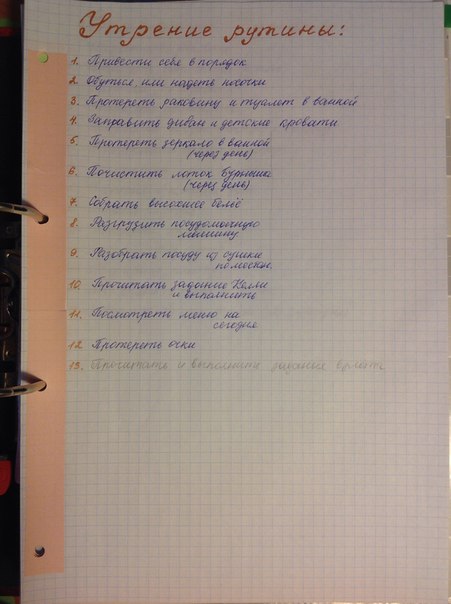 Утрение рутины:
1. Привести себя в порядок
2. Обуться, или надеть носочки
3. Протереть раковину и туалет в ванной
4. Заправить диван и детские кровати
5. Протереть зеркало в ванной
(через день)
6. Почистить лоток
(через день)
7. Собрать высохшее бельё
8. Разгрузить посудомоечную
машину
9. Разобрать посуду из сушки
по местам.
10. Прочитать задание Келли
и выполнить
11. Посмотреть меню на
сегодня
12. Протереть очки
13. Прочитать и выполнить